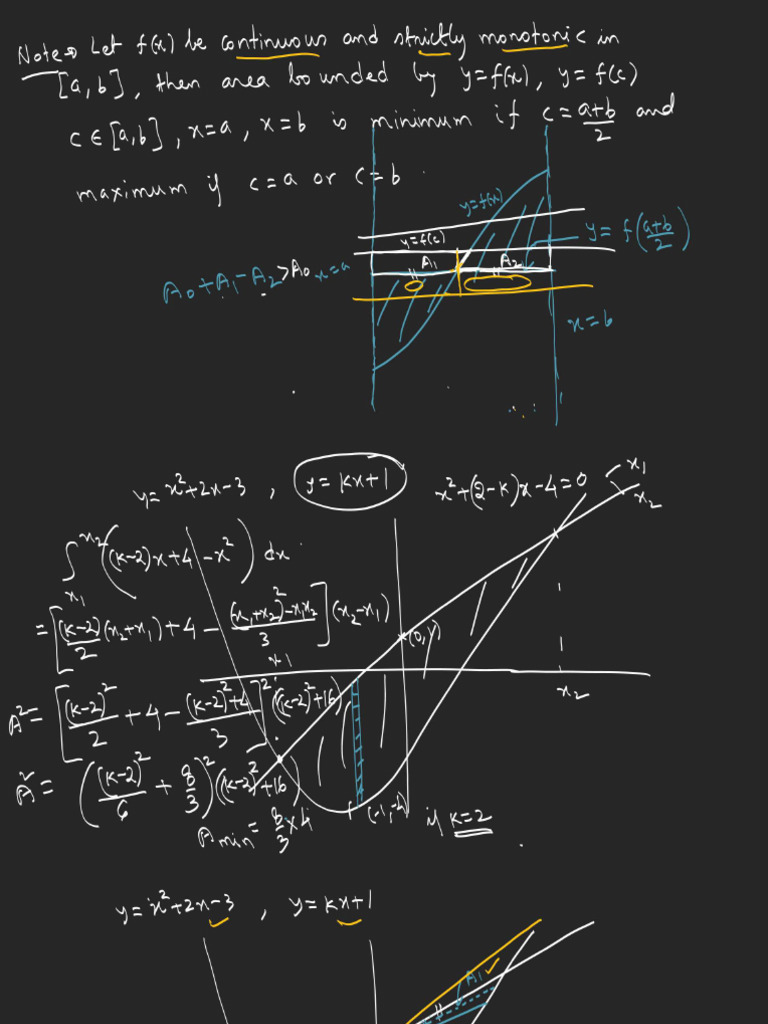 Note→ Let f(x) be continuous and strictly monotonic in
[a,b], then area bounded by y=f(x), y=f(c)
c∈[a,b], x=a, x=b is minimum if c=a+b/2 and
maximum if c=a or c=b.
y=f(x)
y=f(c)
y=f(a+b/2)
A₁ A₂
A₀+A₁-A₂>A₀ x=a
x=b
y=x²+2x-3, y=kx+1 x²+(2-k)x-4=0 x₁ x₂
∫ₓ₁ˣ² ((k-2)x+4-x²) dx
=[(k-2)/2 (x₂+x₁)+4-((x₁+x₂)²-x₁x₂)/3](x₂-x₁)
(0,1)
x₁
x₂
A²=[(k-2)²/2+4-((k-2)²+4)/3]²((k-2)²+16)
A²=((k-2)²/6+8/3)²((k-2)²+16)
(-1,-4)
A min=8/3×4 if k=2
y=x²+2x-3, y=kx+1
A₁